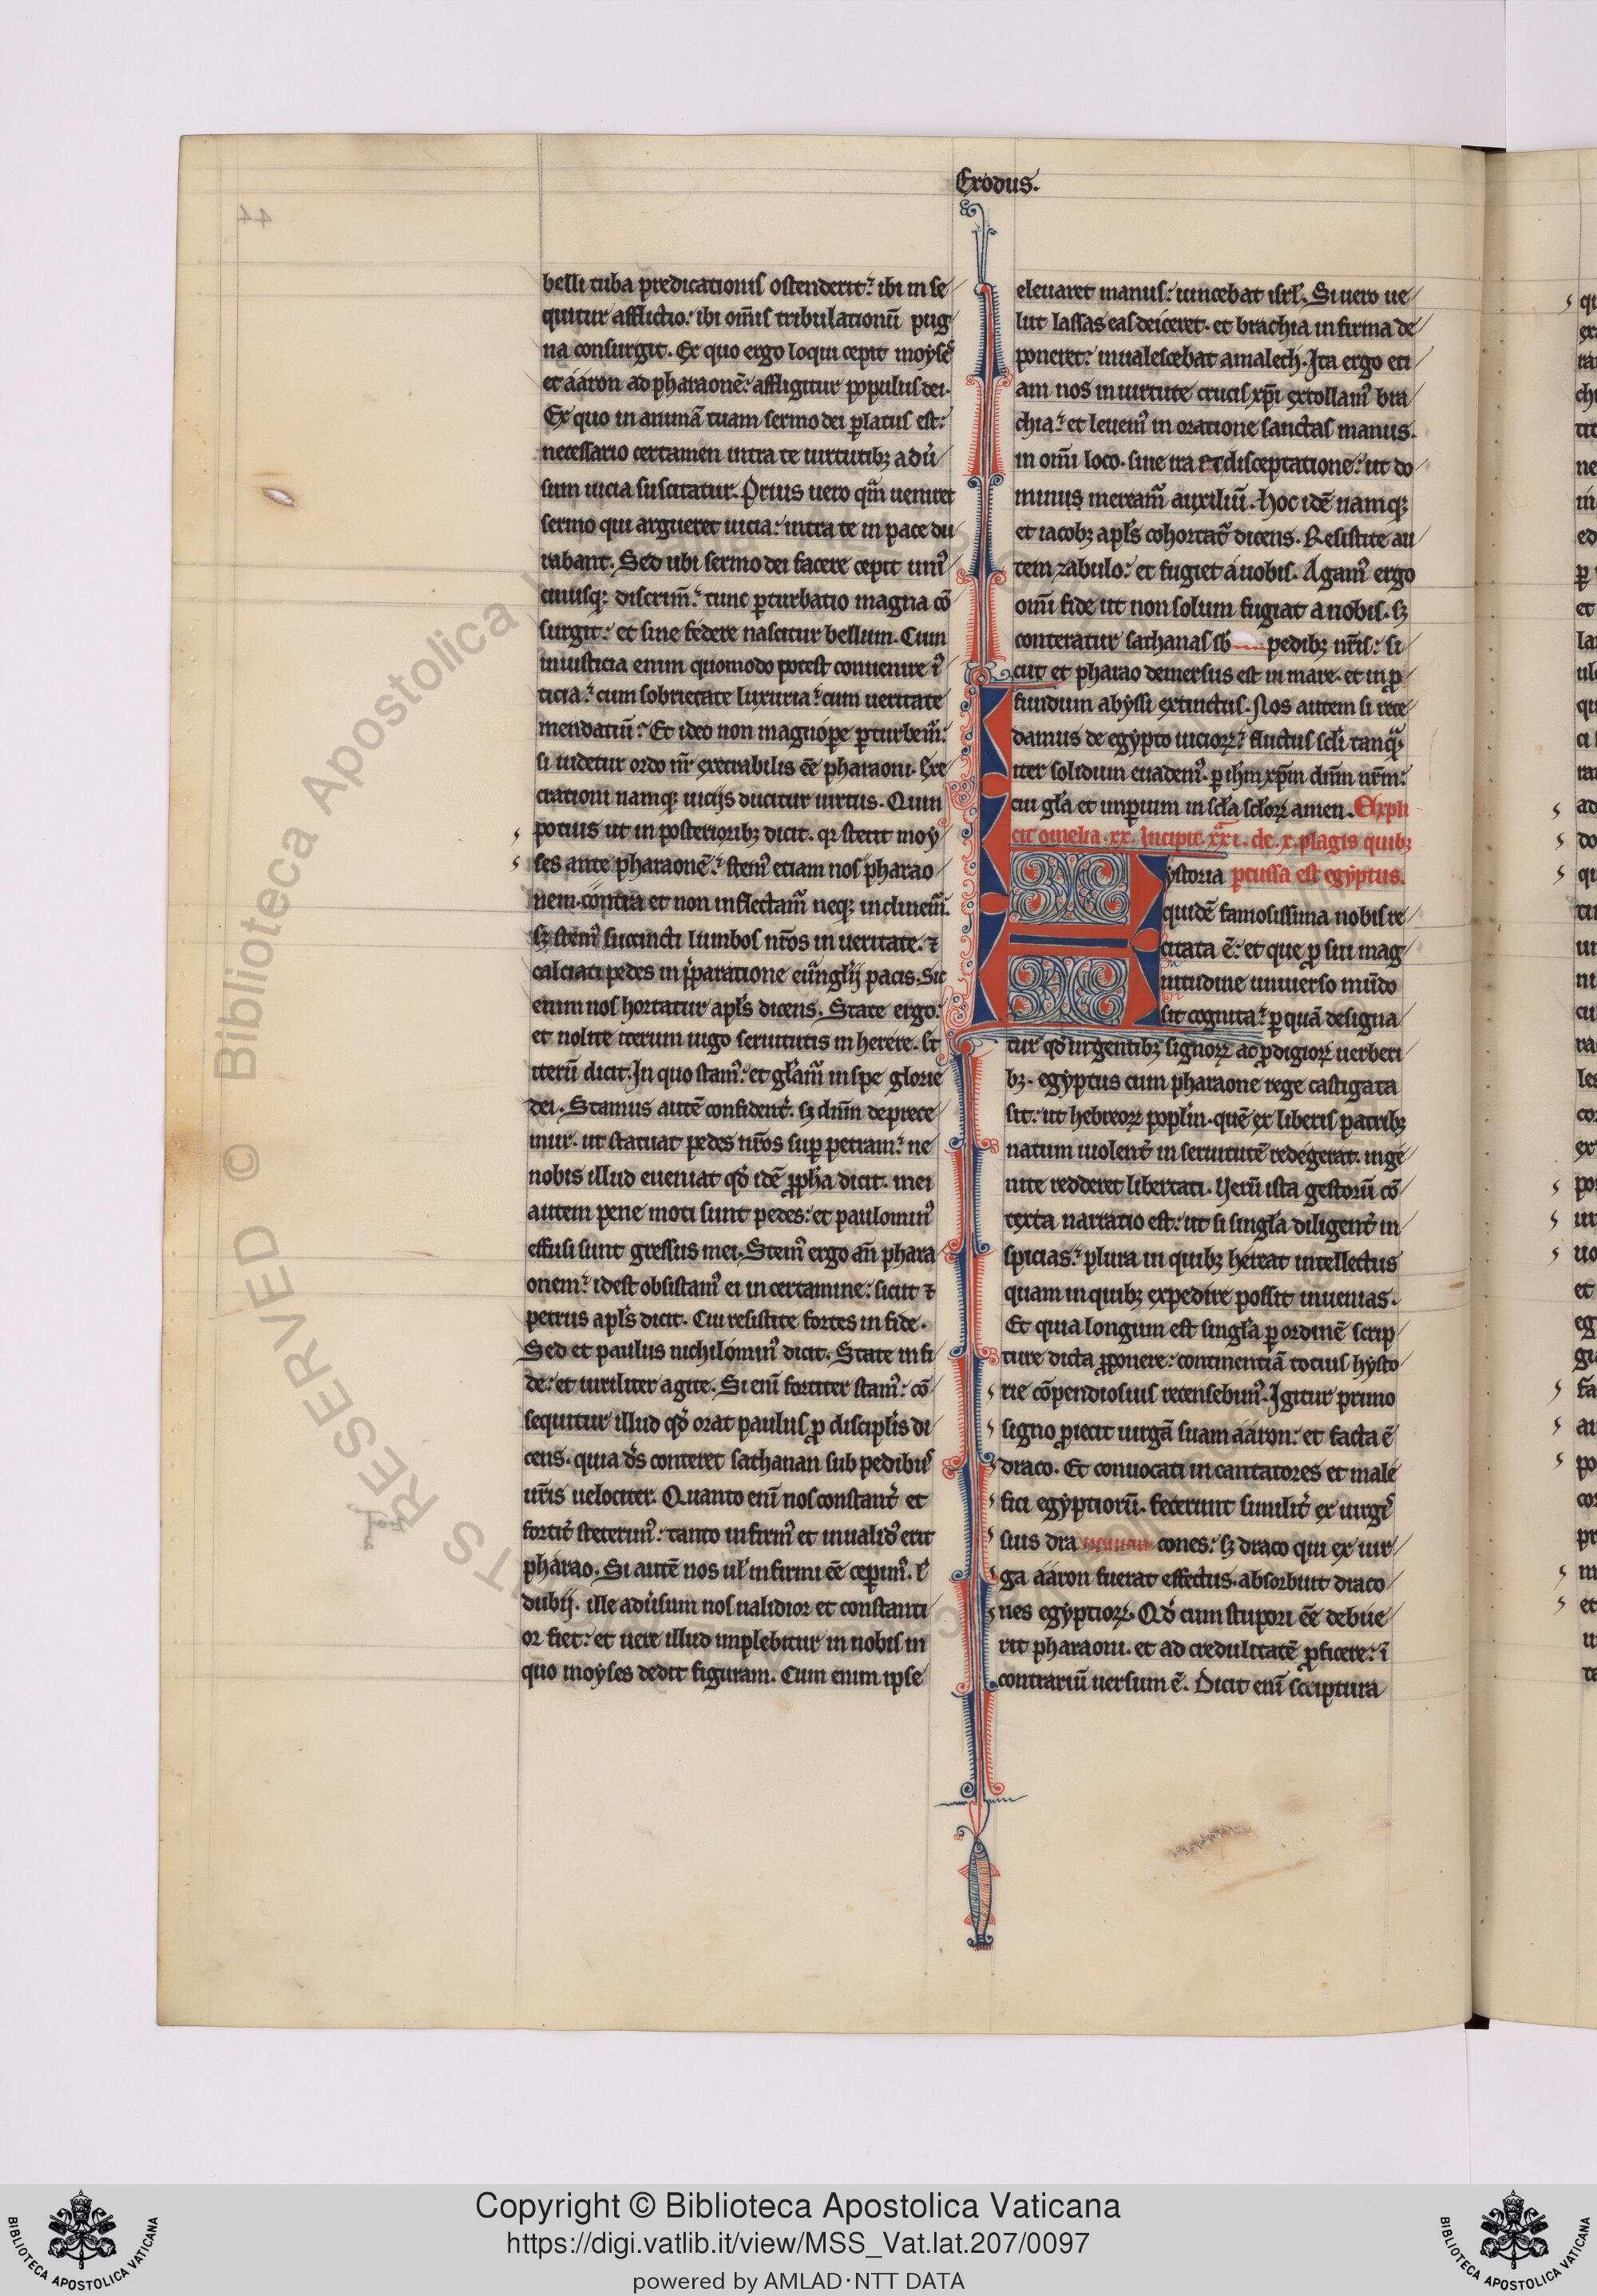 Exodus.
belli tuba predicationis ostenderit: ibi inse
quitur afflictio: ibi om̄is tribulationū pug
na consurgit. Ex quo ergo loqui cepit moyse᷒
et aaron ad pharaonē: affligitur populus dei.
Ex quo in animā tuam sermo dei ꝑlatus est:
necessario certamen intra te uirtutibꝫ adu͛
sum uicia suscitatur. Prius uero qm̄ ueniret
sermo qui argueret uicia: intra te in pace du
rabant. Sed ubi sermo dei facere cepit uniꝰ
cuiusqꝫ discrim̄: tunc ꝑturbatio magna cō
surgit: et sine federe nascitur bellum. Cum
iniusticia enim quomodo potest conuenire iꝰ
ticia: cum sobrietate luxuria: cum ueritate
mendatiū: Et ideo non magnope ꝑturbem̄:
si uidetur ordo nr̄ execrabilis eē pharaoni. Exe
crationi namqꝫ uicijs ducitur uirtus. Quin
potius ut in posterioribꝫ dicit. qꝛ stetit moy
ses ante pharaonē: stemꝰ etiam nos pharao
nem contra et non inflectam̄ neqꝫ inclinem̄.
sꝫ stemꝰ succincti lumbos nr̄os in ueritate. ⁊
calciati pedes in p̄paratione eu̅ngl̅ij pacis. Sic
enim nos hortatur apl̅s dicens. State ergo:
et nolite iterum iugo seruitutis inherere. Et
iterū dicit. In quo stamꝰ: et gl̅am̄ in spe glorie
dei. Stamus autē confident͛. sꝫ dn̄m deprece
mur. ut statuat pedes nr̄os suꝑ petram: ne
nobis illud eueniat qd̓ idē ꝓpha dicit. mei
autem pene moti sunt pedes: et paulominꝰ
effusi sunt gressus mei. Stemꝰ ergo an̄ phara
onem: idest obsistamꝰ ei in certamine: sicut ⁊
petrus apl̅s dicit. Cui resistite fortes in fide.
Sed et paulus nichilominꝰ dicit. State in fi
de: et uiriliter agite. Si eni̅ fortiter stamꝰ: cō
sequitur illud qd̓ orat paulus ꝓ discipl̅is di
cens. quia ds̄ conteret sathanan sub pedibus
ur̄is uelociter. Quanto eni̅ nos constant͛ et
fortit͛ steterimꝰ: tanto infirmꝰ et inualidꝰ erit
pharao. Si autē nos ul̅ infirmi eē ceperimꝰ. l̅
dubij. ille adu͛sum nos ualidior et constanti
or fiet: et uere illud implebitur in nobis in
quo moyses dedit figuram. Cum enim ipse
eleuaret manus: uincebat isrl̅. Si uero ue
lut lassas eas deiceret. et brachia infirma de
poneret: inualescebat amalech. Ita ergo eti
am nos in uirtute crucis xp̄i extollamꝰ bra
chia: et leuemꝰ in oratione sanctas manus.
in om̄i loco. sine ira et disceptatione: ut do
minus meream̄ auxiliū. Hoc idē namqꝫ
et iacobꝫ apl̅s cohortat͛ dicens. Resistite au
tem zabulo: et fugiet a uobis. Agamꝰ ergo
om̄i fide ut non solum fugiat a nobis. sꝫ
conteratur sathanas sb̅ pedibꝫ nr̄is: si
cut et pharao demersus est in mare. et in ꝓ
fundum abyssi extinctus. Nos autem si rece
damus de egypto uiciorꝝ: fluctus scl̅i tanqꝫ
iter solidum euademꝰ. ꝑ ihm̄ xp̄m dn̄m nr̄m:
cui gl̅a et imꝑium in scl̅a scl̅orꝝ amen. Expli
cit omelia. xx. Incipit. xxi. de. x. plagis quibꝫ
ystoria ꝑcussa est egyptus.
quidē famosissima nobis re
citata ē: et que ꝓ sui mag
nitudine uniuerso mūdo
sit cognita: ꝑ quā designa
tur qd̓ urgentibꝫ signorꝝ ac ꝓdigiorꝝ uerberi
bꝫ. egyptus cum pharaone rege castigata
sit: ut hebreorꝝ popl̅m. quē ex liberis patribꝫ
natum uiolent͛ in seruitutē redegerat. inge
nite redderet libertati. Uerū ista gestorū cō
texta narratio est: ut si singl̅a diligent͛ in
spicias: plura in quibꝫ hereat intellectus
quam in quibꝫ expedire possit inuenias.
Et quia longum est singl̅a ꝑ ordinē scrip
ture dicta ꝓponere: continentiā totius hysto
rie cōpendiosius recensebimꝰ. Igitur primo
signo proiecit uirgā suam aaron: et facta ē
draco. Et conuocati incantatores et male
fici egyptiorū. fecerunt similit͛ ex uirgis
suis dra cones: sꝫ draco qui ex uir
ga aaron fuerat effectus. absorbuit draco
nes egyptiorꝝ. Qd̓ cum stupori eē debue
rit pharaoni. et ad credulitatē ꝓficere: ī
contrariū uersum ē. Dicit eni̅ scriptura
Copyright © Biblioteca Apostolica Vaticana
https://digi.vatlib.it/view/MSS_Vat.lat.207/0097
powered by AMLAD·NTT DATA
BIBLIOTECA APOSTOLICA VATICANA
BIBLIOTECA APOSTOLICA VATICANA